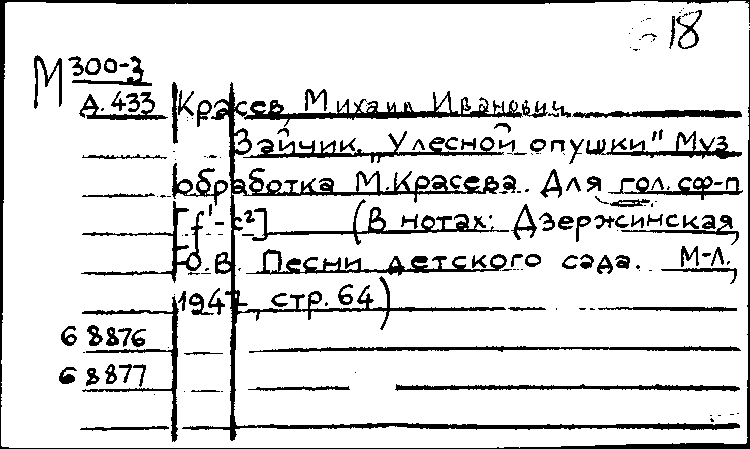 618
М 300-3
Д. 433 Красев, Михаил Иванович
Зайчик. „У лесной опушки" Муз.
обработка М. Красева. Для гол. с ф-п
[f¹-c²] (В нотах: Дзержинская,
Ю.В. Песни детского сада. М-Л.,
1947, стр. 64)
68876
68877